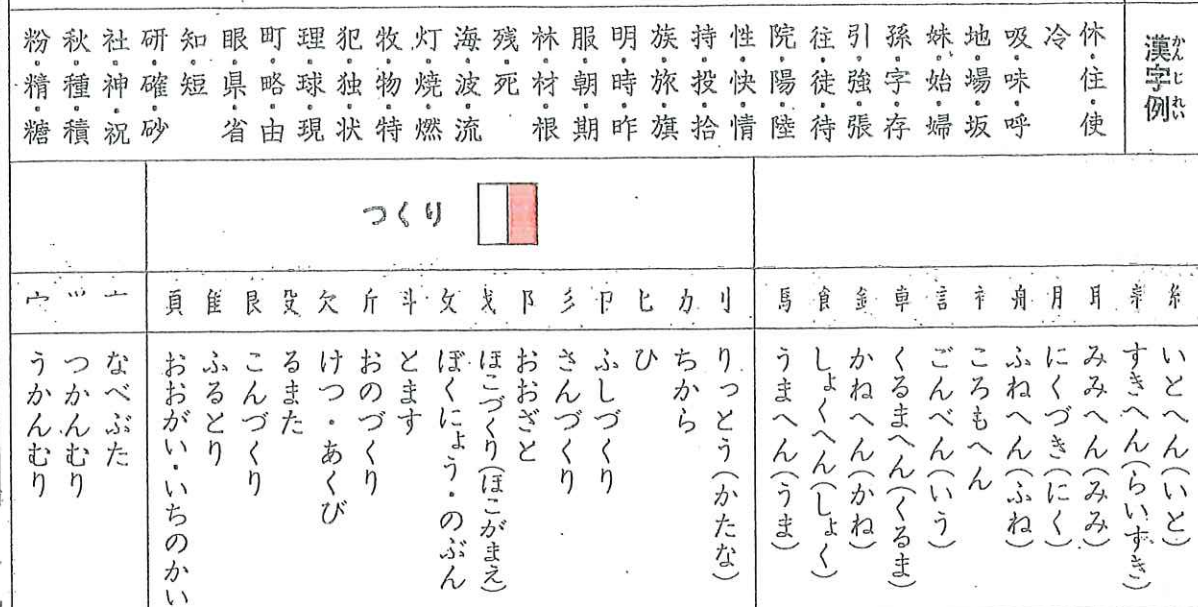 漢字例
かんじれい
休・住・使
冷
吸・味・呼
地・場・坂
妹・始・婦
孫・字・存
引・強・張
往・徒・待
院・陽・陸
性・快・情
持・投・拾
族・旅・旗
明・時・昨
服・朝・期
林・材・根
残・死
海・波・流
灯・焼・燃
牧・物・特
犯・独・状
理・球・現
町・略・由
眼・県・省
知・短
研・確・砂
社・神・祝
秋・種・積
粉・精・糖
つくり
糸 いとへん(いと)
耒 すきへん(らいすき)
耳 みみへん(みみ)
月 にくづき(にく)
舟 ふねへん(ふね)
衤 ころもへん
言 ごんべん(いう)
車 くるまへん(くるま)
金 かねへん(かね)
食 しょくへん(しょく)
馬 うまへん(うま)
刂 りっとう(かたな)
力 ちから
匕 ひ
卩 ふしづくり
彡 さんづくり
阝 おおざと
戈 ほこづくり(ほこがまえ)
攵 ぼくにょう・のぶん
斗 とます
斤 おのづくり
欠 けつ・あくび
殳 るまた
艮 こんづくり
隹 ふるとり
頁 おおがい・いちのかい
亠 なべぶた
⺍ つかんむり
宀 うかんむり